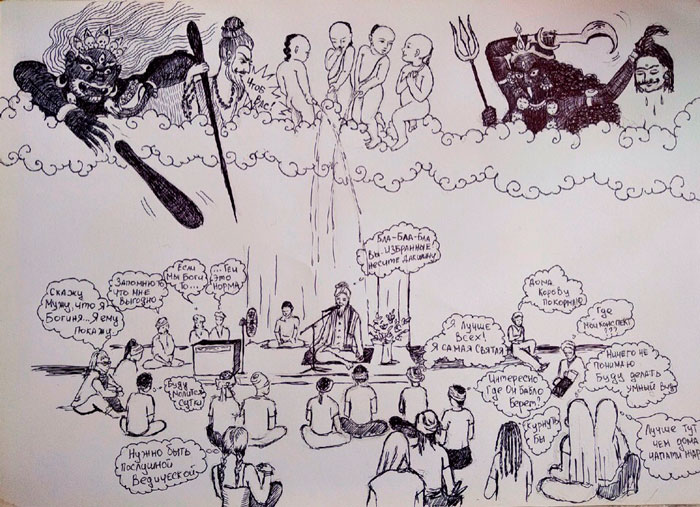 ЧТОБ
ВАС!
БЛА-БЛА-БЛА
ВЫ ИЗБРАННЫЕ
НЕСИТЕ ДАКШИНУ
СКАЖУ
МУЖУ, ЧТО Я-
БОГИНЯ...Я ЕМУ
ПОКАЖУ
ЗАПОМНЮ ТО
ЧТО МНЕ
ВЫГОДНО
ЕСЛИ
МЫ БОГИ
ТО...
...ТО
ЭТО
НОРМА
ДОМА
КОРОВУ
ПОКОРМЛЮ
ГДЕ
МОЙ КОНСПЕКТ
???
Я ЛУЧШЕ
ВСЕХ!
Я САМАЯ СВЯТАЯ
НИЧЕГО НЕ
ПОНИМАЮ
БУДУ ДЕЛАТЬ
УМНЫЙ ВИД
БУДУ
МОЛИТСЯ
СУТКИ
ИНТЕРЕСНО
ГДЕ ОН БАБЛО
БЕРЕТ?
КУРНУТЬ
БЫ
НУЖНО БЫТЬ
ПОСЛУШНОЙ
ВЕДИЧЕСКОЙ
ЛУЧШЕ ТУТ
ЧЕМ ДОМА